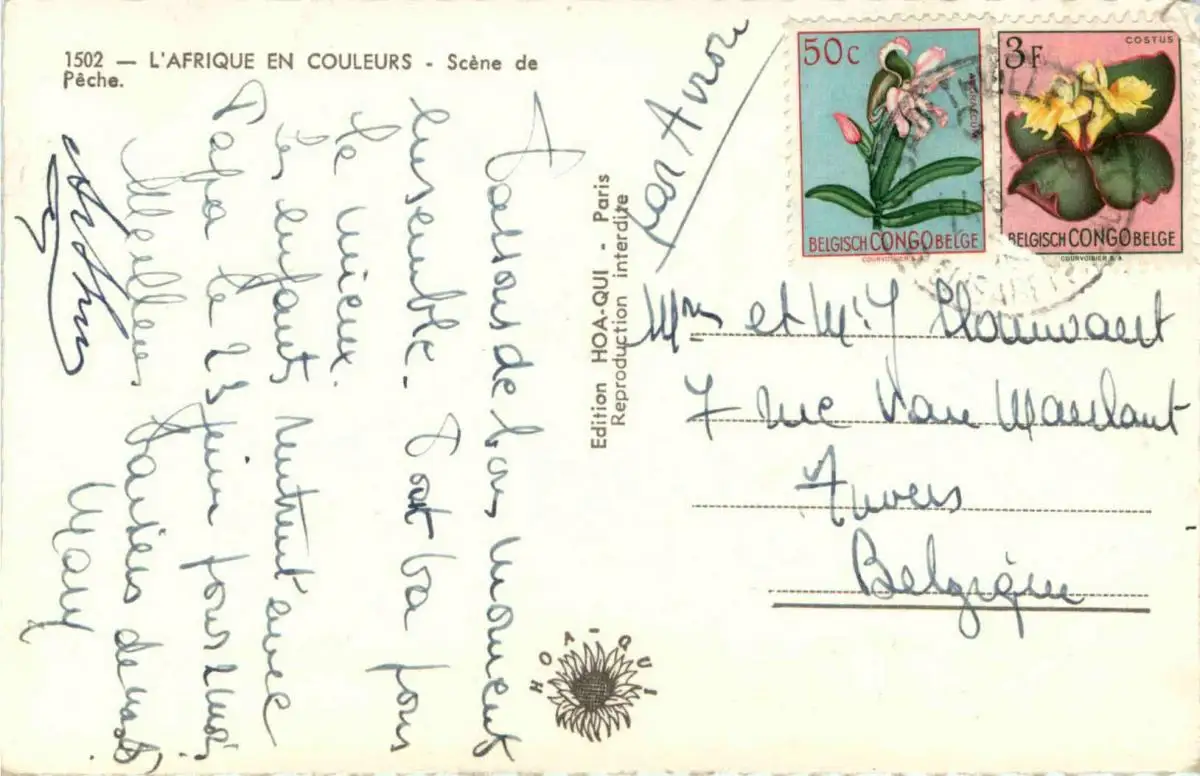 1502 — L'AFRIQUE EN COULEURS - Scène de
Pêche.
Passons de bons moments
ensemble. Tout va pour
le mieux.
Les enfants rentrent avec
Papa le 23 juin pour 2 mois
Meilleures Amitiés de nous
Mary
Edition HOA-QUI - Paris
Reproduction interdite
HOA QUI
Par Avion
50c
BELGISCH CONGO BELGE
COURVOISIER S.A.
3F
COSTUS
BELGISCH CONGO BELGE
COURVOISIER S.A.
Mme et Mr J
7 rue Van Maerlant
Anvers
Belgique